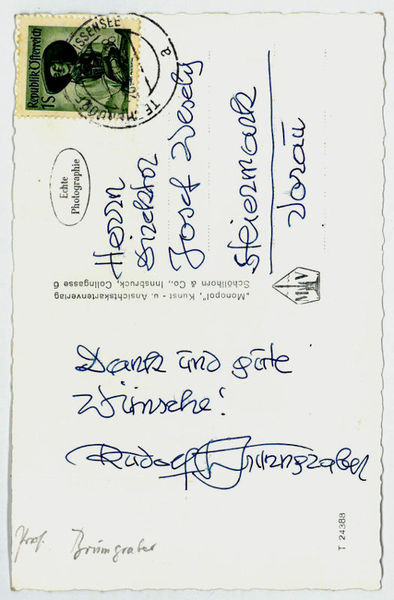 Republik Österreich
1S
Echte
Photographie
Herrn
Direktor
Josef Wesely
Steiermark
Vorau
„Monopol", Kunst - u. Ansichtskartenverlag
Schöllhorn & Co., Innsbruck, Colingasse 6
Dank und gute
Wünsche!
Rudolf Brunngraber
T 24388
Prof. Brunngraber